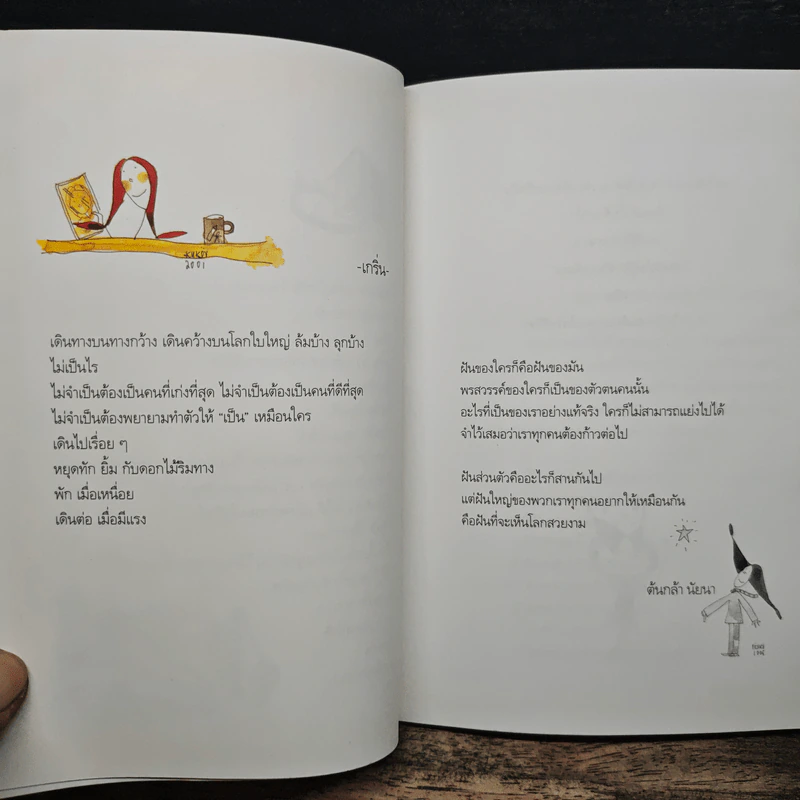 KUKOY
2001
-เกริ่น-
เดินทางบนทางกว้าง เดินคว้างบนโลกใบใหญ่ ล้มบ้าง ลุกบ้าง
ไม่เป็นไร
ไม่จำเป็นต้องเป็นคนที่เก่งที่สุด ไม่จำเป็นต้องเป็นคนที่ดีที่สุด
ไม่จำเป็นต้องพยายามทำตัวให้ "เป็น" เหมือนใคร
เดินไปเรื่อย ๆ
หยุดทัก ยิ้ม กับดอกไม้ริมทาง
พัก เมื่อเหนื่อย
เดินต่อ เมื่อมีแรง
ฝันของใครก็คือฝันของมัน
พรสวรรค์ของใครก็เป็นของตัวตนคนนั้น
อะไรที่เป็นของเราอย่างแท้จริง ใครก็ไม่สามารถแย่งไปได้
จำไว้เสมอว่าเราทุกคนต้องก้าวต่อไป
ฝันส่วนตัวคืออะไรก็สานกันไป
แต่ฝันใหญ่ของพวกเราทุกคนอยากให้เหมือนกัน
คือฝันที่จะเห็นโลกสวยงาม
ต้นกล้า นัยนา